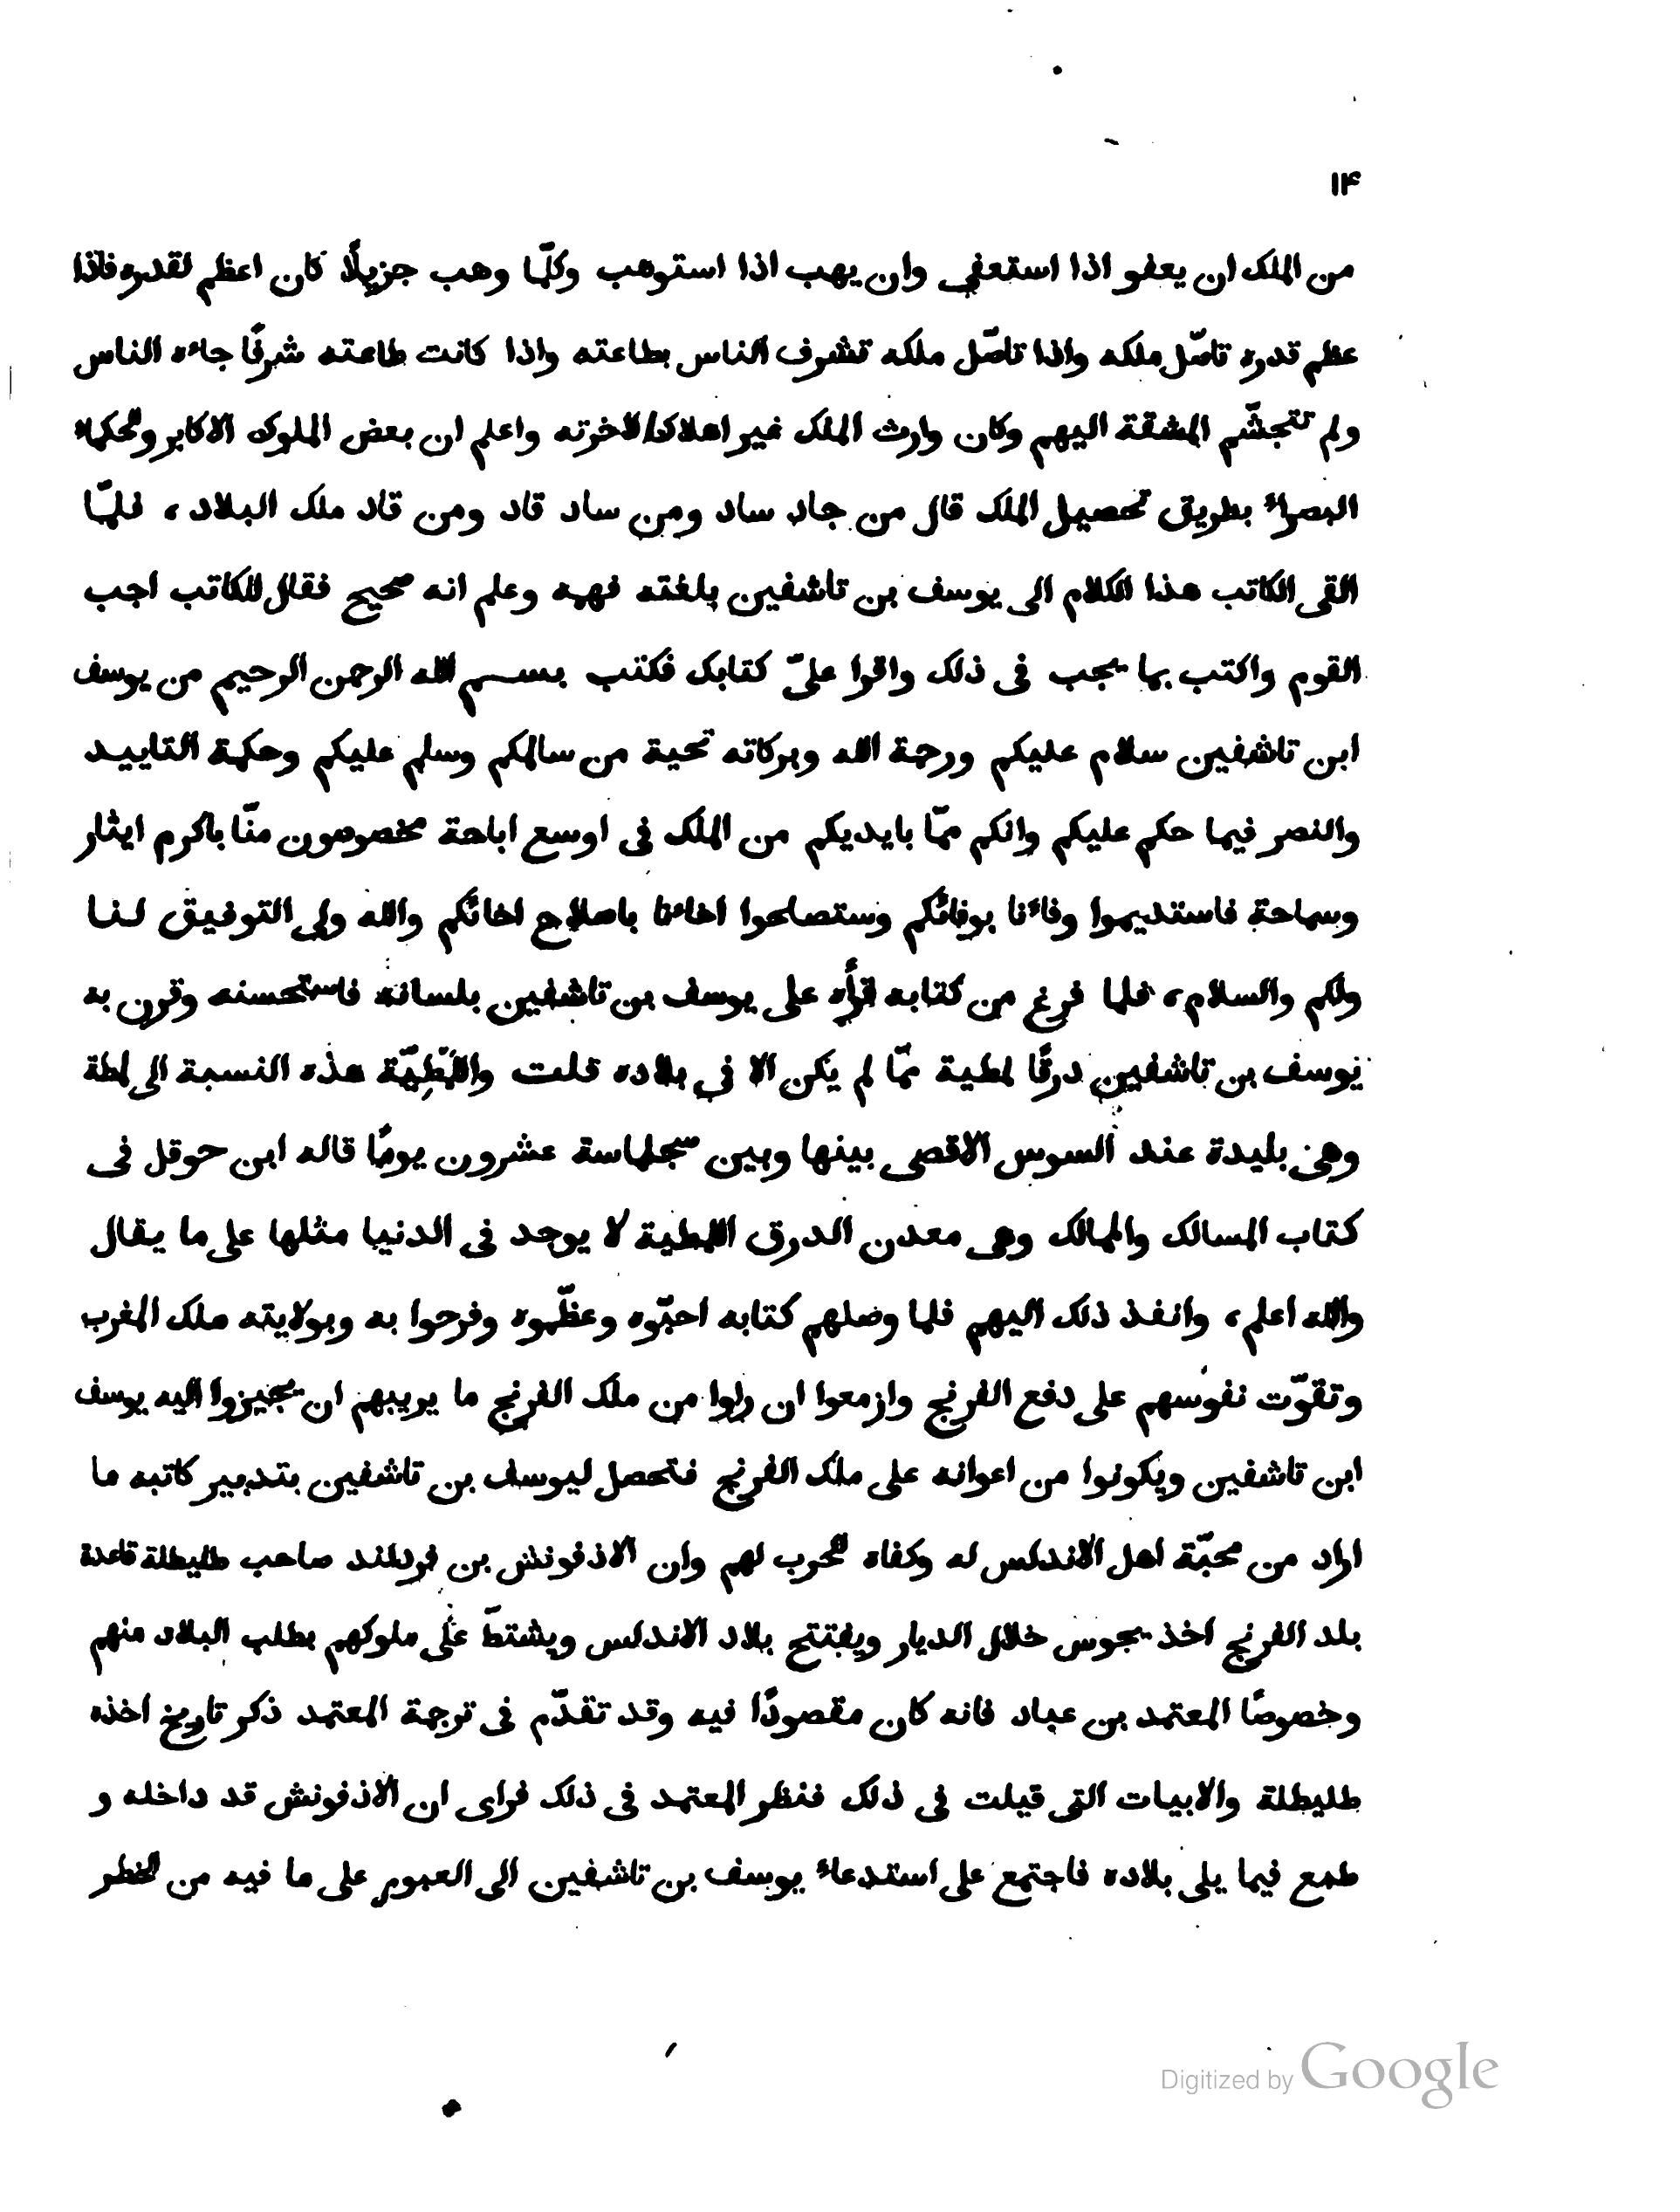 ١٤
من الملك ان يعفو اذا استعفى وان يهب اذا استوهب وكلّما وهب جزيلًا كان اعظم لقدره فاذا
عظم قدره تاصّل ملكه واذا تاصّل ملكه تشرف الناس بطاعته واذا كانت طاعته شرفًا جاءه الناس
ولم تتجشّم المشقة اليهم وكان وارث الملك غير اهلاك لاخرته واعلم ان بعض الملوك الاكابر والحكماء
البصراء بطريق تحصيل الملك قال من جاد ساد ومن ساد قاد ومن قاد ملك البلاد، فلمّا
القى الكاتب هذا الكلام الى يوسف بن تاشفين بلغته فهمه وعلم انه صحيح فقال للكاتب اجب
القوم واكتب بما يجب فى ذلك واقرا علىّ كتابك فكتب بسم الله الرحمن الرحيم من يوسف
ابن تاشفين سلام عليكم ورحمة الله وبركاته تحية من سالمكم وسلم عليكم وحكمة التاييد
والنصر فيما حكم عليكم وانكم ممّا بايديكم من الملك فى اوسع اباحة مخصوصون منّا باكرم ايثار
وسماحة فاستديموا وفاءنا بوفائكم وستصلحوا اخاءنا باصلاح اخائكم والله ولى التوفيق لنا
ولكم والسلام، فلما فرغ من كتابه قرأه على يوسف بن تاشفين بلسانه فاستحسنه وقرن به
يوسف بن تاشفين درقًا لمطية ممّا لم يكن الا فى بلاده قلت واللَّمْطِيّة هذه النسبة الى لمطة
وهى بليدة عند السوس الاقصى بينها وبين سجلماسة عشرون يومًا قاله ابن حوقل فى
كتاب المسالك والممالك وهى معدن الدرق اللمطية لا يوجد فى الدنيا مثلها على ما يقال
والله اعلم، وانفذ ذلك اليهم فلما وصلهم كتابه احبّوه وعظّموه وفرحوا به وبولايته ملك المغرب
وتقوّت نفوسهم على دفع الفرنج وازمعوا ان راوا من ملك الفرنج ما يريبهم ان يجيزوا اليه يوسف
ابن تاشفين ويكونوا من اعوانه على ملك الفرنج فتحصل ليوسف بن تاشفين بتدبير كاتبه ما
اراد من محبّة اهل الاندلس له وكفاه الحرب لهم وان الاذفونش بن فردلند صاحب طليطلة قاعدة
بلد الفرنج اخذ يجوس خلال الديار ويفتتح بلاد الاندلس ويشتطّ على ملوكهم بطلب البلاد منهم
وخصوصًا المعتمد بن عباد فانه كان مقصودًا فيه وقد تقدّم فى ترجمة المعتمد ذكر تاريخ اخذه
طليطلة والابيات التى قيلت فى ذلك فنظر المعتمد فى ذلك فراى ان الاذفونش قد داخله و
طمع فيما يلى بلاده فاجتمع على استدعاء يوسف بن تاشفين الى العبور على ما فيه من الخطر
Digitized by Google